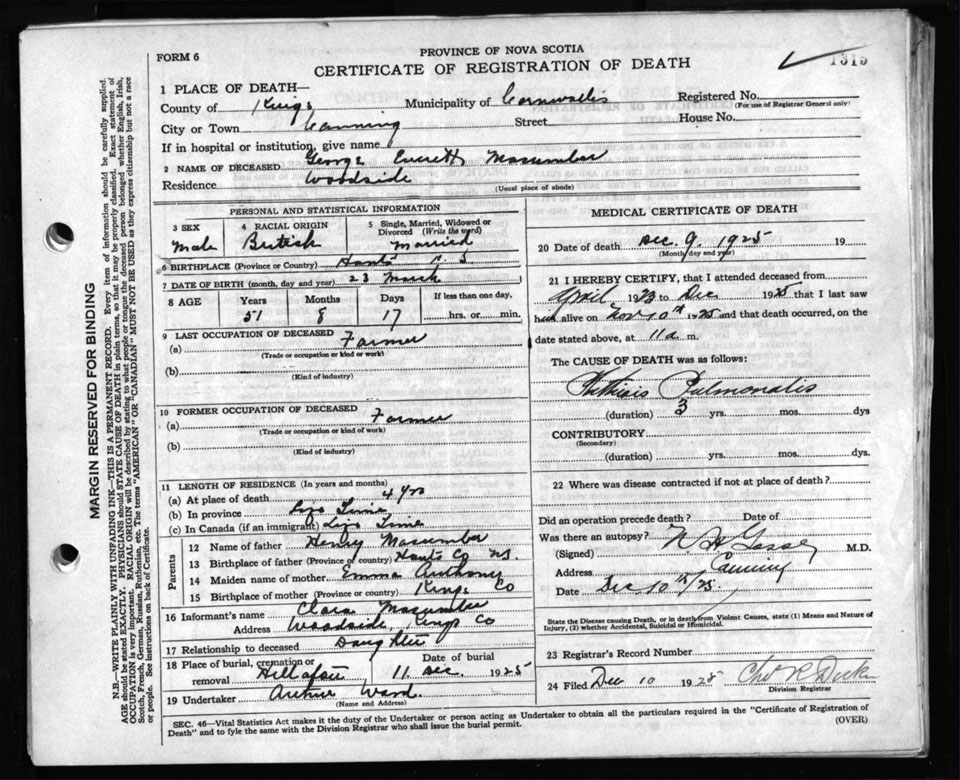 FORM 6
PROVINCE OF NOVA SCOTIA
CERTIFICATE OF REGISTRATION OF DEATH
1319
1 PLACE OF DEATH—
County of Kings Municipality of Cornwallis Registered No.
(For use of Registrar General only)
City or Town Canning Street House No.
If in hospital or institution, give name
2 NAME OF DECEASED George Everett Macumber
Residence Woodside
(Usual place of abode)
PERSONAL AND STATISTICAL INFORMATION
3 SEX Male
4 RACIAL ORIGIN British
5 Single, Married, Widowed or Divorced (Write the word) Married
6 BIRTHPLACE (Province or Country) Hants N. S
7 DATE OF BIRTH (month, day and year) 23 March
8 AGE Years 51 Months 8 Days 17 If less than one day, hrs. or min.
9 LAST OCCUPATION OF DECEASED
(a) Farmer
(Trade or occupation or kind or work)
(b)
(Kind of industry)
10 FORMER OCCUPATION OF DECEASED
(a) Farmer
(Trade or occupation or kind of work)
(b)
(Kind of industry)
11 LENGTH OF RESIDENCE (In years and months)
(a) At place of death 4 yrs
(b) In province Life Time
(c) In Canada (if an immigrant) Life Time
Parents
12 Name of father Henry Macumber
13 Birthplace of father (Province or country) Hants Co NS.
14 Maiden name of mother Emma Anthony
15 Birthplace of mother (Province or country) Kings Co
16 Informant's name Clara Macumber
Address Woodside Kings Co
17 Relationship to deceased Daughter
18 Place of burial, cremation or removal Date of burial 11 Dec. 1925
19 Undertaker Arthur Ward.
(Name and Address)
MEDICAL CERTIFICATE OF DEATH
20 Date of death Dec. 9. 1925 19
(Month, day and year)
21 I HEREBY CERTIFY, that I attended deceased from
April 1923 to Dec 1925 that I last saw
him alive on Nov 10th 1925 and that death occurred, on the
date stated above, at 11 a m.
The CAUSE OF DEATH was as follows:
Phthisis Pulmonalis
(duration) 3 yrs. mos. dys
CONTRIBUTORY
(Secondary)
(duration) yrs. mos. dys.
22 Where was disease contracted if not at place of death?
Did an operation precede death? Date of
Was there an autopsy?
(Signed) M.D.
Address Canning
Date Dec 10th/25.
State the Disease causing Death, or in death from Violent Causes, state (1) Means and Nature of
Injury, (2) whether Accidental, Suicidal or Homicidal.
23 Registrar's Record Number
24 Filed Dec 10 1925
Division Registrar
SEC. 46—Vital Statistics Act makes it the duty of the Undertaker or person acting as Undertaker to obtain all the particulars required in the "Certificate of Registration of
Death" and to fyle the same with the Division Registrar who shall issue the burial permit. (OVER)
MARGIN RESERVED FOR BINDING
N.B.—WRITE PLAINLY WITH UNFADING INK—THIS IS A PERMANENT RECORD. Every item of information should be carefully supplied.
AGE should be stated EXACTLY. PHYSICIANS should STATE CAUSE OF DEATH in plain terms, so that it may be properly classified. Exact statement of
OCCUPATION is very important. RACIAL ORIGIN will be described by stating to what people or tongue the deceased person belonged whether English, Irish,
Scotch, French, German, Russian, Ruthenian, etc. The terms "AMERICAN" OR "CANADIAN" MUST NOT BE USED as they express citizenship but not a race
or people. See instructions on back of Certificate.